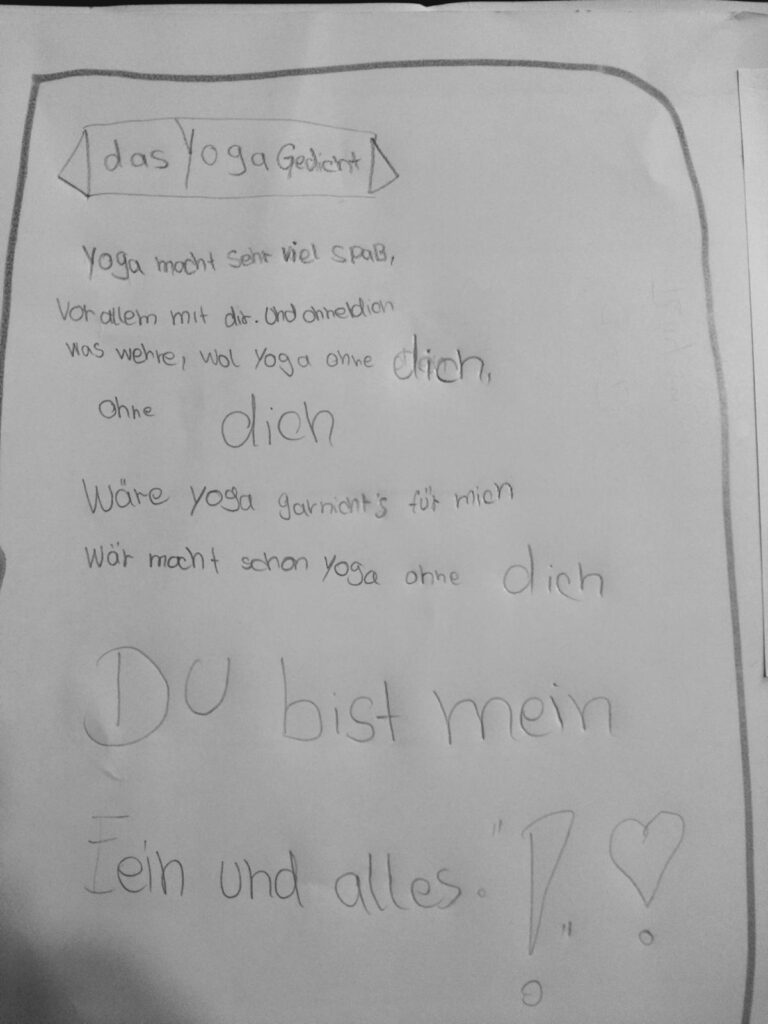 das Yoga Gedicht
Yoga macht sehr viel Spaß,
Vor allem mit dir. Und ohne dich
was wehre, wol Yoga ohne dich,
Ohne dich
Wäre yoga garnicht's für mich
Wär macht schon yoga ohne dich
DU bist mein
Eein und alles."!"